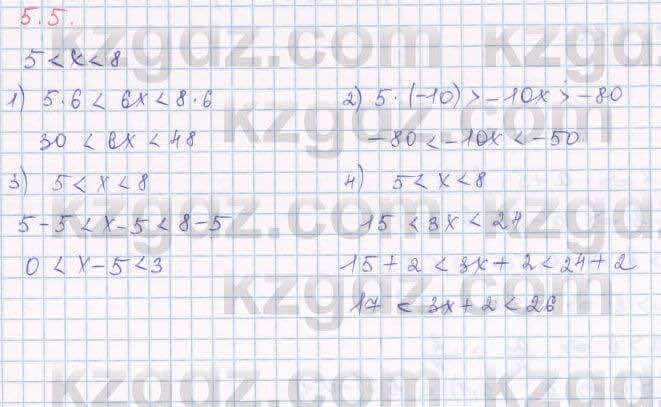 5.5.
5 < x < 8
1) 5·6 < 6x < 8·6
30 < 6x < 48
2) 5·(-10) > -10x > -80
-80 < -10x < -50
3) 5 < x < 8
5-5 < x-5 < 8-5
0 < x-5 < 3
4) 5 < x < 8
15 < 3x < 24
15+2 < 3x+2 < 24+2
17 < 3x+2 < 26
kzgdz.com
kzgdz.com
kzgdz.com
kzgdz.com
kzgdz.com